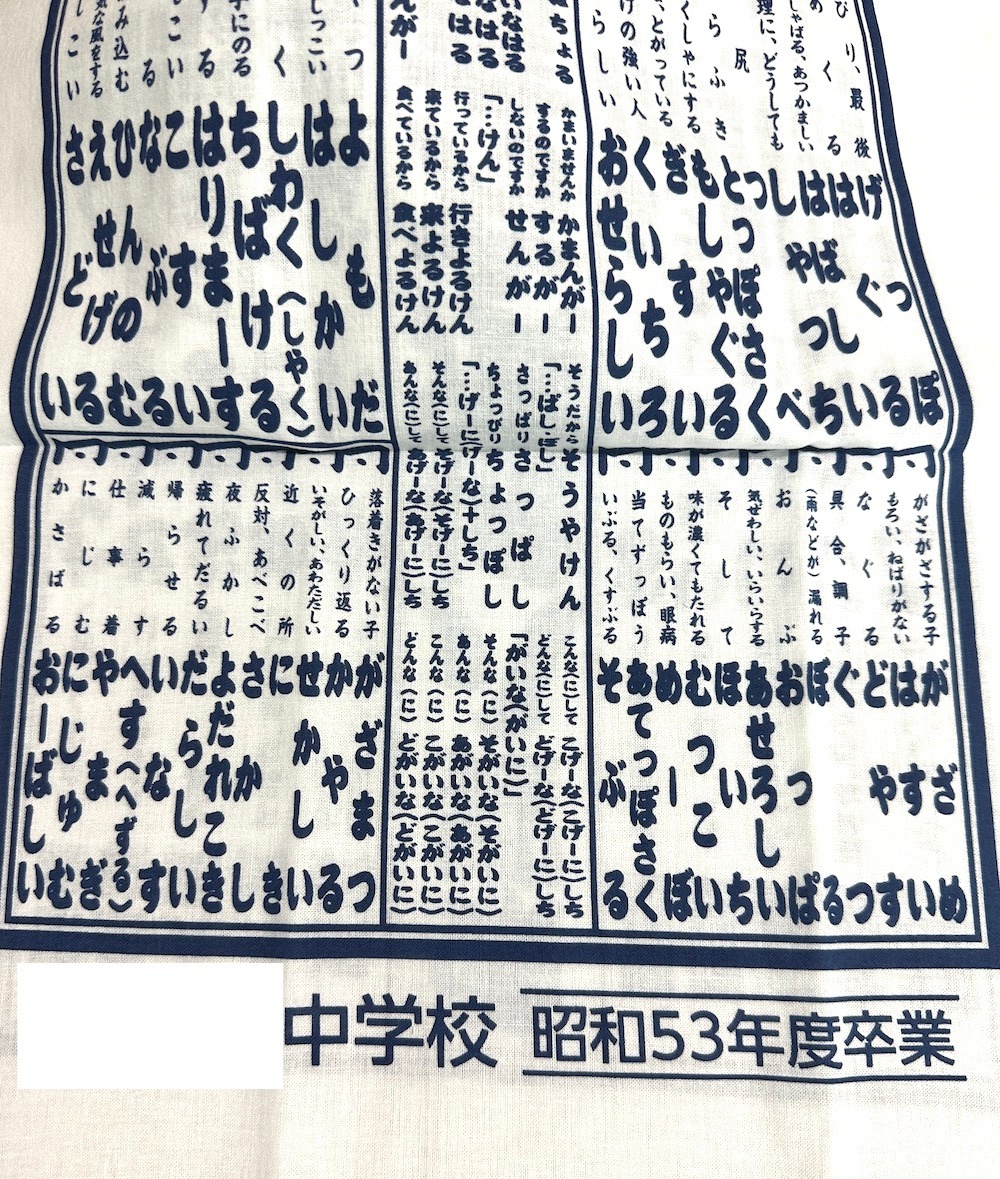 び り、最 後 げっぽ
め く る はぐる
しゃばる、あつかましい はばしい
理に、どうしても しやっち
尻 つべ
らふき とっぽさく
くしゃにする もしゃぐる
、とがっている ぎすい
けの強い人 くいちろ
らしい おせらしい
がざがざする子 がざめ
もろい、ねばりがない はすい
なぐる どやす
具合、調子 ぐつ
(雨などが)漏れる ぼる
おんぶ おっぱ
気ぜわしい、いらいらする あせろしい
そして ほいち
味が濃くてもたれる むつこい
ものもらい、眼病 めーぼ
当てずっぽう あてっぽさく
いぶる、くすぶる そぶる
ちょる
いなはる
なはる
はる
んがー
かまいませんか かまんがー
するのですか するがー
しないのですか せんがー
「…けん」
行っているから 行きよるけん
来ているから 来よるけん
食べているから 食べよるけん
そうだから そうやけん
「…ばし・ぽし」
さっぱり さっぱし
ちょっぴり ちょっぽし
「…げーに(げーな)+しち」
そんな(に)して そげーな(そげーに)しち
あんな(に)して あげーな(あげーに)しち
こんな(に)して こげーな(こげーに)しち
どんな(に)して どげーな(どげーに)しち
「がいな(がいに)」
そんな(に) そがいな(そがいに)
あんな(に) あがいな(あがいに)
こんな(に) こがいな(こがいに)
どんな(に) どがいな(どがいに)
つ よもだ
しっこい はしかい
く しわく(しゃく)
手にのる ちばける
する はりまーす
こい こすい
る なぶる
み込む ひんのむ
気な風をする えせげる
しこい さどい
落着きがない子 がざまつ
ひっくり返る かやる
いそがしい、あわただしい せかしい
近くの所 にき
反対、あべこべ さかし
夜ふかし よだれこき
疲れてだるい だらしい
帰らせる いなす
減らす へす(へずる)
仕事着 やまぎ
にじむ にじゅむ
かさばる おーばしい
中学校 昭和53年度卒業